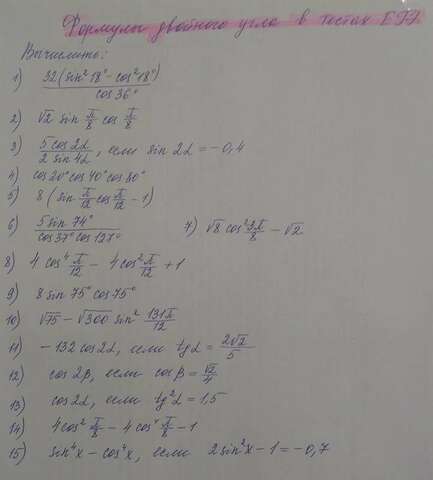 Формулы двойного угла в тестах ЕГЭ
Вычислить:
1) 32(sin²18° - cos²18°) / cos36°
2) √2 sin π/8 cos π/8
3) 5cos2α / 2sin4α, если sin2α = -0,4
4) cos20°cos40°cos80°
5) 8(sin π/12 cos π/12 - 1)
6) 5sin74° / cos37°cos127° 7) √8 cos² 3π/8 - √2
8) 4cos⁴ π/12 - 4cos² π/12 + 1
9) 8sin75°cos75°
10) √75 - √300 sin² 131π/12
11) -132cos2α, если tgα = 2√2/5
12) cos2β, если cosβ = √2/4
13) cos2α, если tg²α = 1,5
14) 4cos² π/8 - 4cos⁴ π/8 - 1
15) sin⁴x - cos⁴x, если 2sin²x - 1 = -0,7